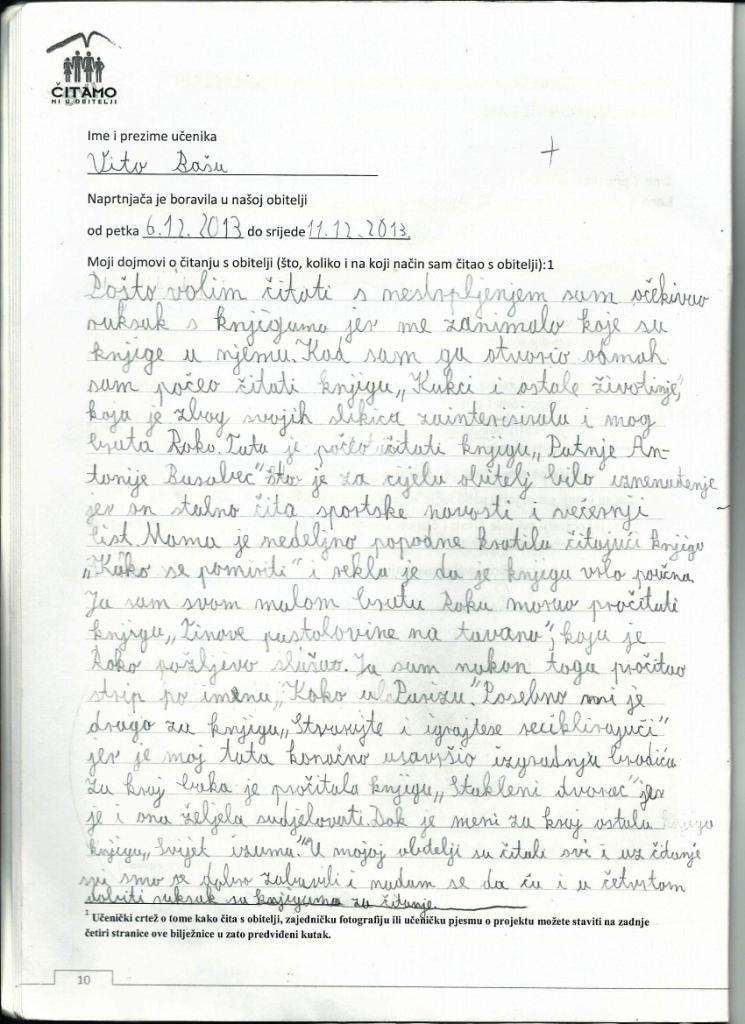 ČITAMO
MI U OBITELJI
Ime i prezime učenika
Vito Bašu
Naprtnjača je boravila u našoj obitelji
od petka 6.12.2013 do srijede 11.12.2013.
Moji dojmovi o čitanju s obitelji (što, koliko i na koji način sam čitao s obitelji):1
Pošto volim čitati s nestrpljenjem sam očekivao
ruksak s knjigama jer me zanimalo koje su
knjige u njemu. Kad sam ga otvorio odmah
sam počeo čitati knjigu „Kukci i ostale životinje”,
koja je zbog svojih slikica zainterisirala i mog
brata Roko. Tata je počeo čitati knjigu „Putnje An-
tonije Barabec” što je za cijelu obitelj bilo iznenađenje
jer on stalno čita sportske novosti i večernji
list. Mama je nedeljno popodne kratila čitajući knjigu
„Kako se pomiriti” i rekla je da je knjiga vrlo poučna.
Ja sam svom malom bratu Roku morao pročitati
knjigu „Tinove pustolovine na tavanu”, koju je
Roko pozljivo slušao. Ja sam nakon toga pročitao
strip po imenu „Koko u Parizu”. Posebno mi je
drago za knjigu „Stvarajte i igrajtese reciklirajući”
jer je moj tata konačno usavršio izgradnju brodića
Za kraj baka je pročitala knjigu „Stakleni dvorac” jer
je i ona željela sudjelovati. Dok je meni za kraj ostala knjiga
knjiga „Svijet izuma.” U mojoj obitelji su čitali svi i uz čitanje
svi smo se dobro zabavili i nadam se da ću i u četvrtom
dobiti ruksak sa knjigama za čitanje.
1 Učenički crtež o tome kako čita s obitelji, zajedničku fotografiju ili učeničku pjesmu o projektu možete staviti na zadnje
četiri stranice ove bilježnice u zato predviđeni kutak.
10